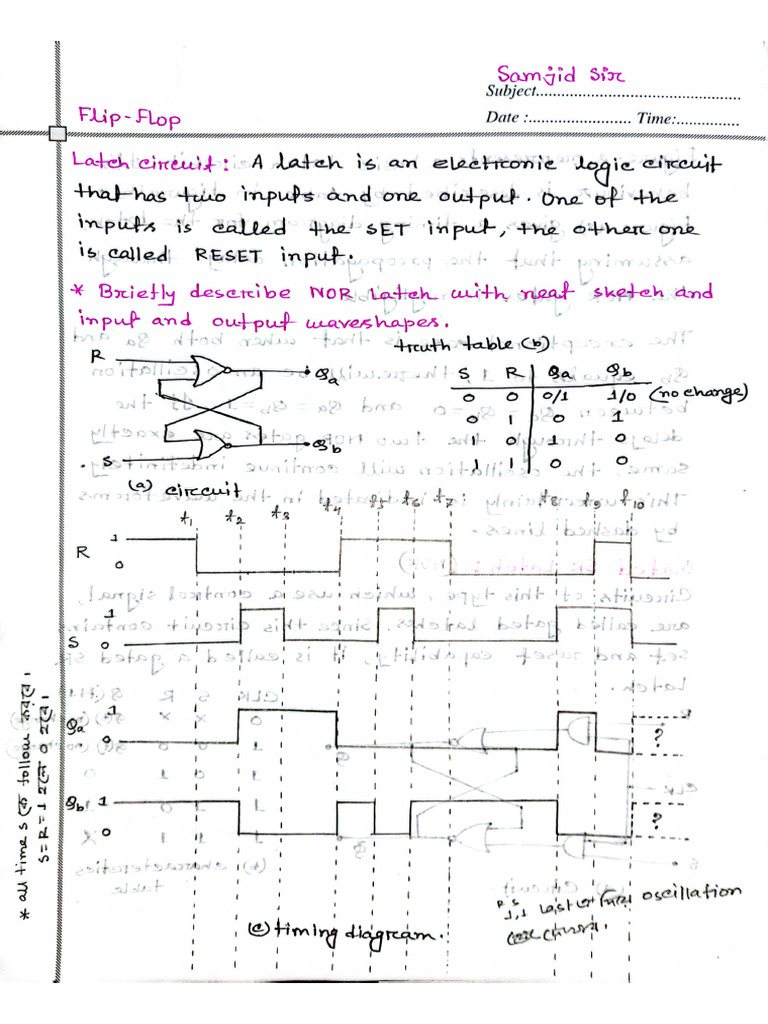 Samjid Sir
Subject
Flip-Flop
Date : Time:
Latch circuit: A latch is an electronic logic circuit
that has two inputs and one output. One of the
inputs is called the SET input, the other one
is called RESET input.
* Briefly describe NOR Latch with neat sketch and
input and output waveshapes.
truth table (b)
R
Qa
S
Qb
(a) circuit
S R Qa Qb
0 0 0/1 1/0 (no change)
0 1 0 1
1 0 1 0
1 1 0 0
t1 t2 t3 t4 t5 t6 t7 t8 t9 t10
R 1
0
S 1
0
Qa 1
0
?
Qb 1
0
?
(c) timing diagram.
R S
1,1 Last এ oscillation
* all time S কে follow করবে।
S=R=1 হলে 0 হবে।